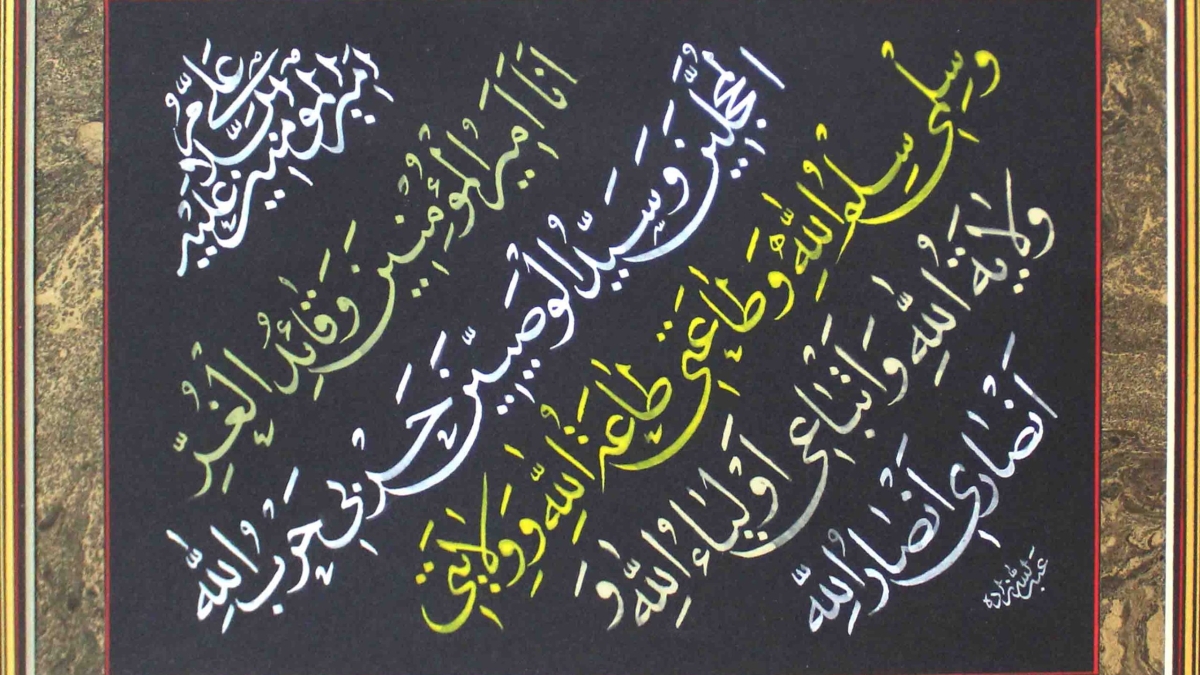 امیرالمؤمنین علی علیه السلام
اَنَا اَمیرُ الْمُؤْمِنینَ وَ قائِدُ الْغُرِّ
الْمُحَجَّلینَ وَ سَیِّدُ الْوَصِیّینَ حَرْبی حَرْبُ اللّٰهِ
وَ سِلْمی سِلْمُ اللّٰهِ وَ طاعَتی طاعَةُ اللّٰهِ وَ وِلایَتی
وِلایَةُ اللّٰهِ وَ اَتْباعی اَوْلِیاءُ اللّٰهِ وَ
اَنْصاری اَنْصارُ اللّٰهِ